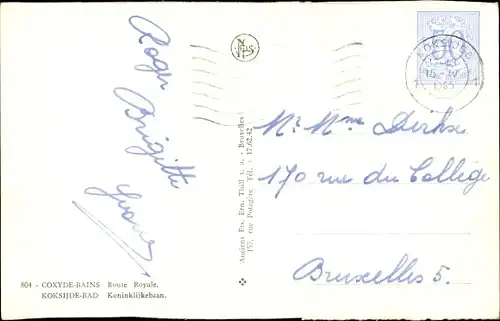 Roger
Brigitte
804 - COXYDE-BAINS Route Royale.
KOKSIJDE-BAD Koninklijkebaan.
Anciens Ets. Ern. Thill s. a. - Bruxelles
157, rue Potagère. Tél. : 17.62.42
50
KOKSIJDE
1
Mr Mme
170 rue du Collège
Bruxelles 5.